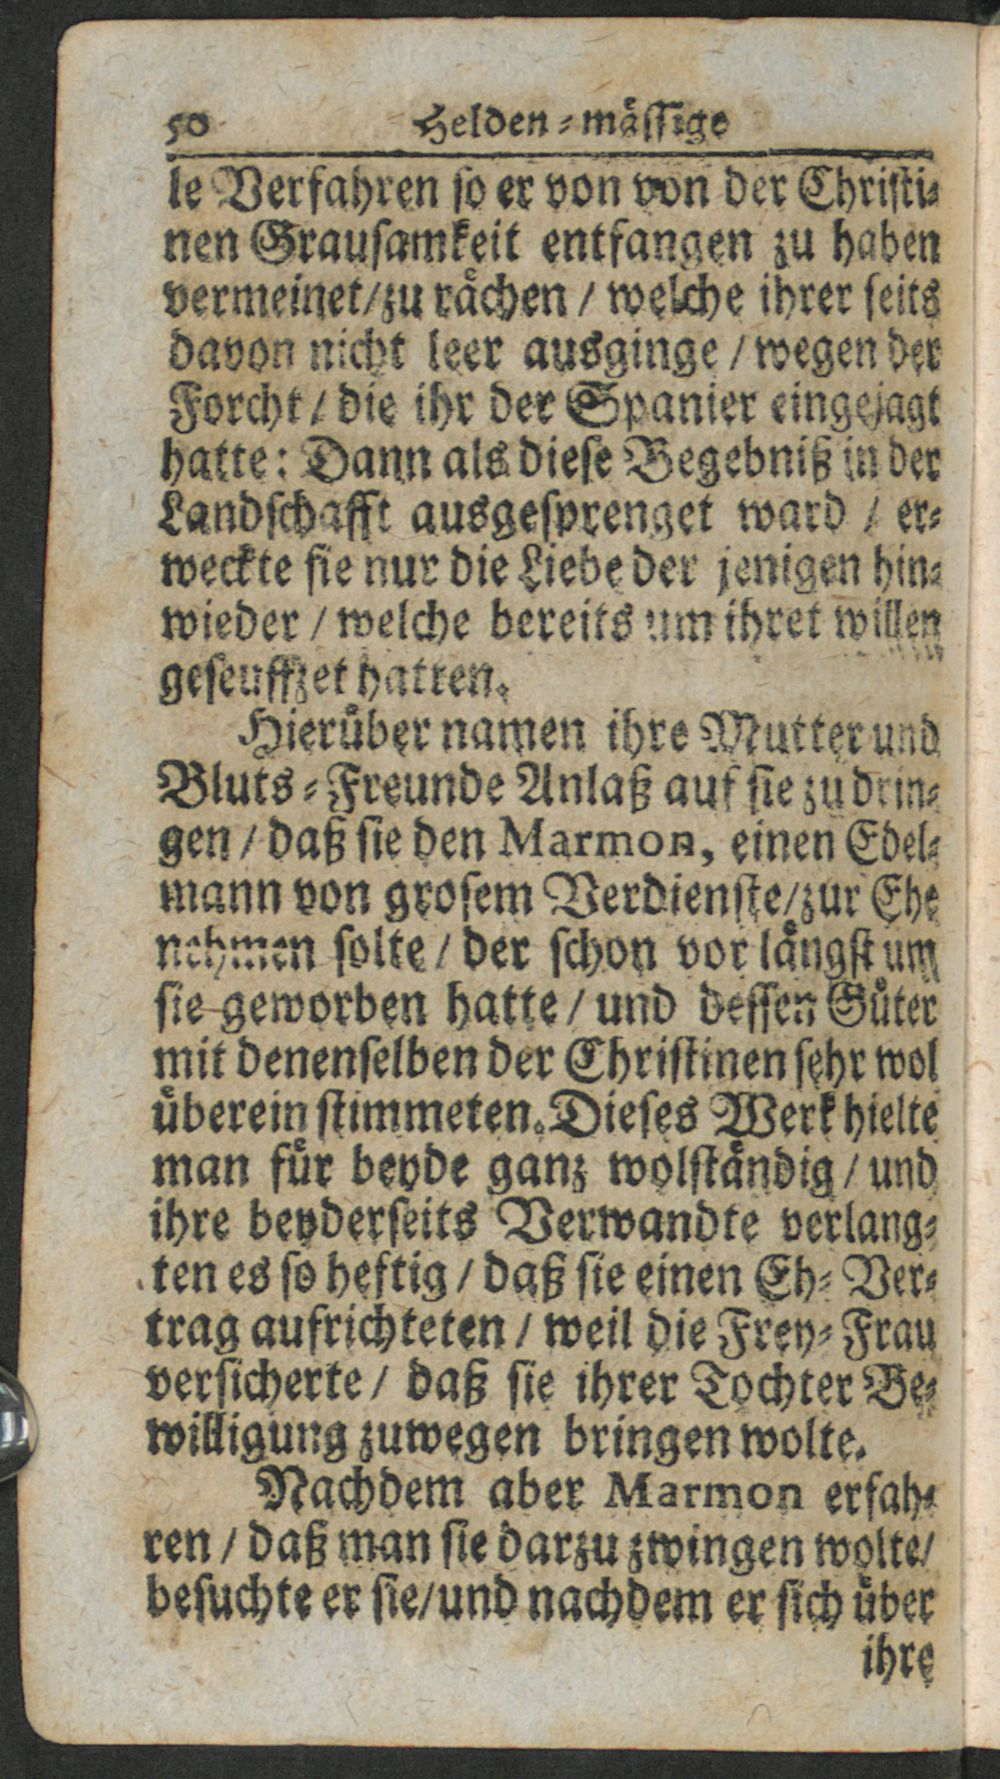 50 Helden-mäſſige
le Verfahren ſo er von von der Chriſti-
nen Grauſamkeit entfangen zu haben
vermeinet/zu rächen / welche ihrer ſeits
davon nicht leer ausginge / wegen der
Forcht / die ihr der Spanier eingejagt
hatte: Dann als dieſe Begebniß in der
Landſchafft ausgeſprenget ward / er-
weckte ſie nur die Liebe der jenigen hin-
wieder / welche bereits um ihret willen
geſeuffzet hatten.
Hierüber namen ihre Mutter und
Bluts-Freunde Anlaß auf ſie zu drin-
gen / daß ſie den Marmon, einen Edel-
mann von groſem Verdienſte/zur Ehe
nehmen ſolte / der ſchon vor längſt um
ſie geworben hatte / und deſſen Güter
mit denenſelben der Chriſtinen ſehr wol
überein ſtimmeten. Dieſes Werk hielte
man für beyde ganz wolſtändig / und
ihre beyderſeits Verwandte verlang-
ten es ſo heftig / daß ſie einen Eh-Ver-
trag aufrichteten / weil die Frey-Frau
verſicherte / daß ſie ihrer Tochter Be-
willigung zuwegen bringen wolte.
Nachdem aber Marmon erfah-
ren / daß man ſie darzu zwingen wolte/
beſuchte er ſie/und nachdem er ſich über
ihre